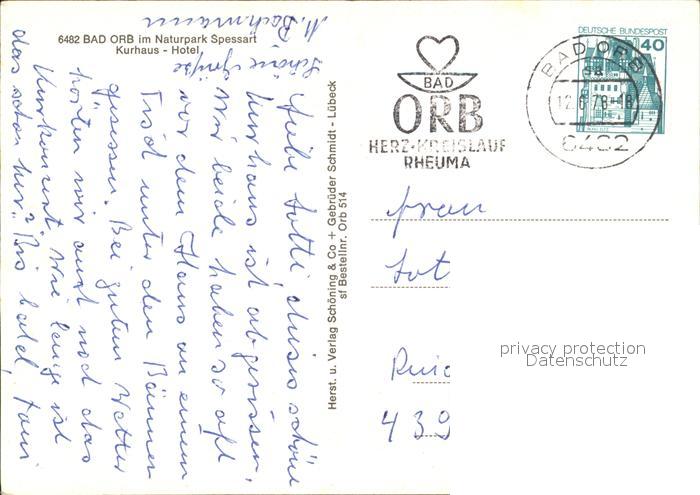 6482 BAD ORB im Naturpark Spessart
Kurhaus - Hotel
Liebe Lotti, dieses schöne
Kurhaus ist abgerissen,
wir beide haben so oft
vor dem Haus an einem
Tisch unter den Bäumen
gesessen. Bei gutem Wetter
hörten wir auch noch das
Kurkonzert. Wie lange ist
das schon her? Bis bald,
Schöne Grüße
M. Bachmann
Herst. u. Verlag Schöning & Co + Gebrüder Schmidt - Lübeck
sf Bestellnr. Orb 514
BAD
ORB
HERZ-KREISLAUF
RHEUMA
BAD ORB
12.6.78-18
6482
DEUTSCHE BUNDESPOST
40
Frau
Lot
439
privacy protection
Datenschutz